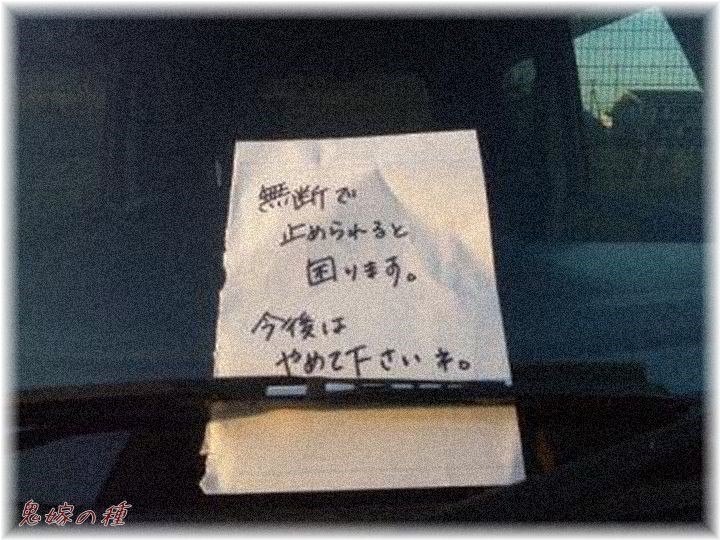 無断で
止められると
困ります。
今後は
やめて下さいネ。
鬼嫁の種